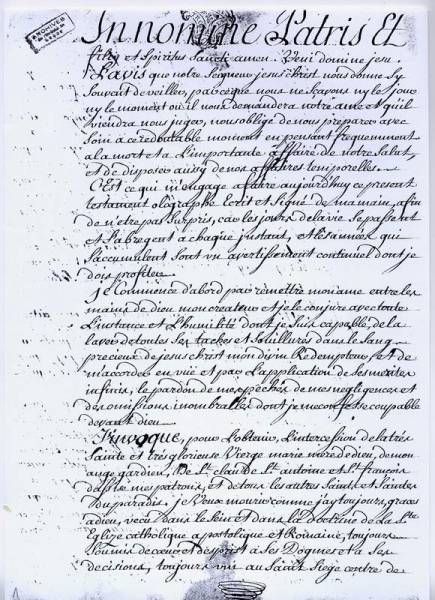 ARCHIVES
In nomine Patris Et
filij et Spiritus Sancti amen. Veni domine jesu
L'avis que notre Seigneur jesus Christ nous donne Sy
Souvent de veiller, parceque nous ne scavons ny le jour
ny le moment ou il nous demandera notre ame et qu'il
viendra nous juger, nous oblige de nous preparer avec
Soin a ce redoutable moment en pensant frequemment
a la mort et a L'importante affaire de notre Salut,
et de disposer aussy de nos affaires temporelles.
C'Est ce qui m'engage a faire aujourd'huy ce present
testament olographe Ecrit et Signé de ma main, afin
de n'etre pas Surpris, car les jours de la vie Se passent
et S'abregent a chaque jnstant, et les années qui
S'accumulent Sont un avertissement continuel dont je
dois profiter.
je Commence d'abord par remettre mon ame entre les
mains de dieu mon createur et je le conjure avec toute
L'instance et L'humilité dont je Suis capable, de la
laver de toutes Ses taches et Souillures dans le Sang
precieux de jesus Christ mon divin Redempteur, et de
m'accorder en vüe et par L'application de Ses merites
infinis, le pardon de mes pechés de mes negligences et
des omissions inombrables dont je me confesse coupable
devant dieu.
J'invoque, pour L'obtenir, L'intercession de la très
Sainte et très glorieuse Vierge marie mere de dieu, de mon
ange gardien, de St. claude St. antoine et St. françois
d'assise mes patrons, et de tous les autres Saints et Saintes
du paradis. je Veux mourir comme j'ay toujours, graces
a dieu, vecu dans le Sein et dans la doctrine de la Ste
Eglise catholique apostolique et Romaine, toujours
Soumis de coeur et d'esprit a Ses Dogmes et a Ses
decisions, toujours uni au Saint Siege centre de